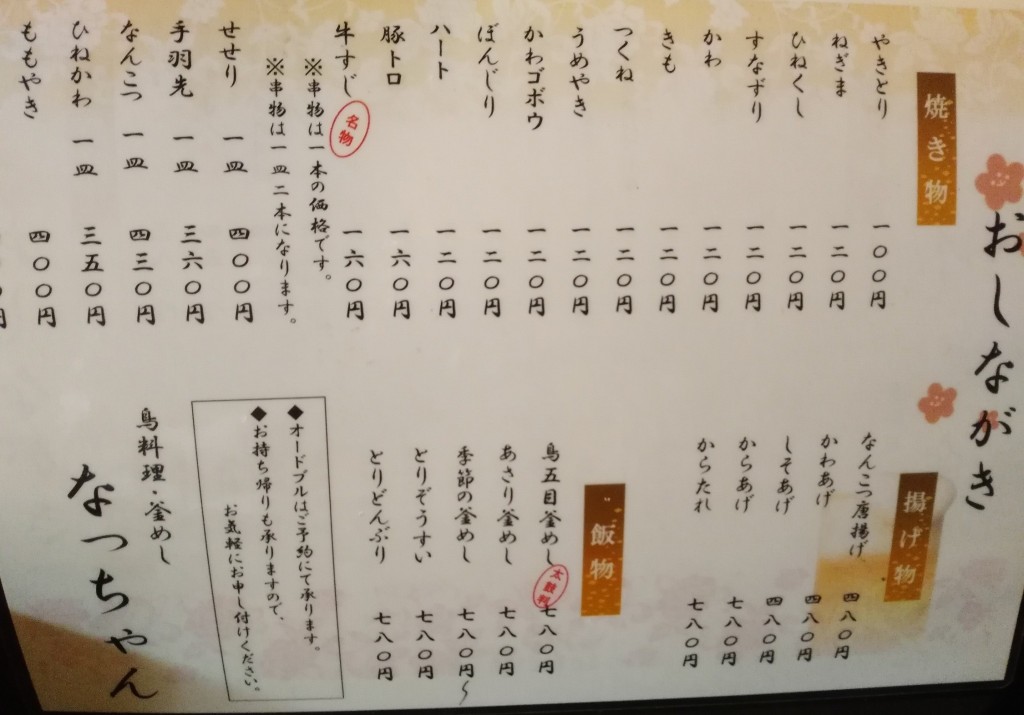 おしながき
焼き物
やきとり 一〇〇円
ねぎま 一二〇円
ひねくし 一二〇円
すなずり 一二〇円
かわ 一二〇円
きも 一二〇円
つくね 一二〇円
うめやき 一二〇円
かわゴボウ 一二〇円
ぼんじり 一二〇円
ハート 一二〇円
豚トロ 一六〇円
牛すじ 名物 一六〇円
※串物は一本の価格です。
※串物は一皿二本になります。
せせり 一皿 四〇〇円
手羽先 一皿 三六〇円
なんこつ 一皿 四三〇円
ひねかわ 一皿 三五〇円
ももやき 四〇〇円
円
揚げ物
なんこつ唐揚げ 四八〇円
かわあげ 四八〇円
しそあげ 四八〇円
からあげ 七八〇円
からたれ 七八〇円
ご飯物
鳥五目釜めし 太鼓判 七八〇円
あさり釜めし 七八〇円
季節の釜めし 七八〇円〜
とりぞうすい 七八〇円
とりどんぶり 七八〇円
◆オードブルはご予約にて承ります。
◆お持ち帰りも承りますので、
お気軽にお申し付けください。
鳥料理・釜めし
なっちゃん